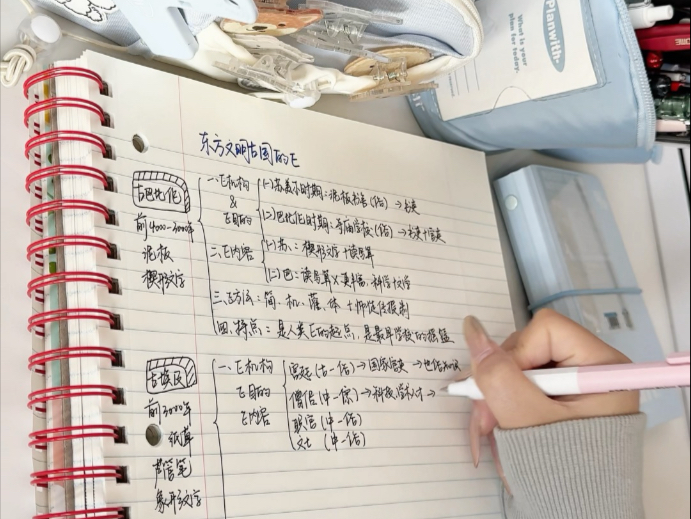 东方文明古国的E
古巴比伦
前4000-3000年
泥板
楔形文字
一、E机构
&
E目的
(一)苏美尔时期：泥板书舍(活) → 书吏
(二)巴比伦时期：寺庙学校(活) → 书吏+官吏
二、E内容
(一)苏：楔形文字+读写算
(二)巴：读写算
三、E方法：简、机、灌、体
四、特点：是人类E的起点，是最早学校的
古埃及
前3000年
纸草
芦管笔
象形文字
一、E机构
E目的
E内容
宫廷(古一活) → 国家官吏
僧侣(中一 → 科技 学术人才 →
职官(中一活)
文士(中一活)
Planwith
plan your
for today.